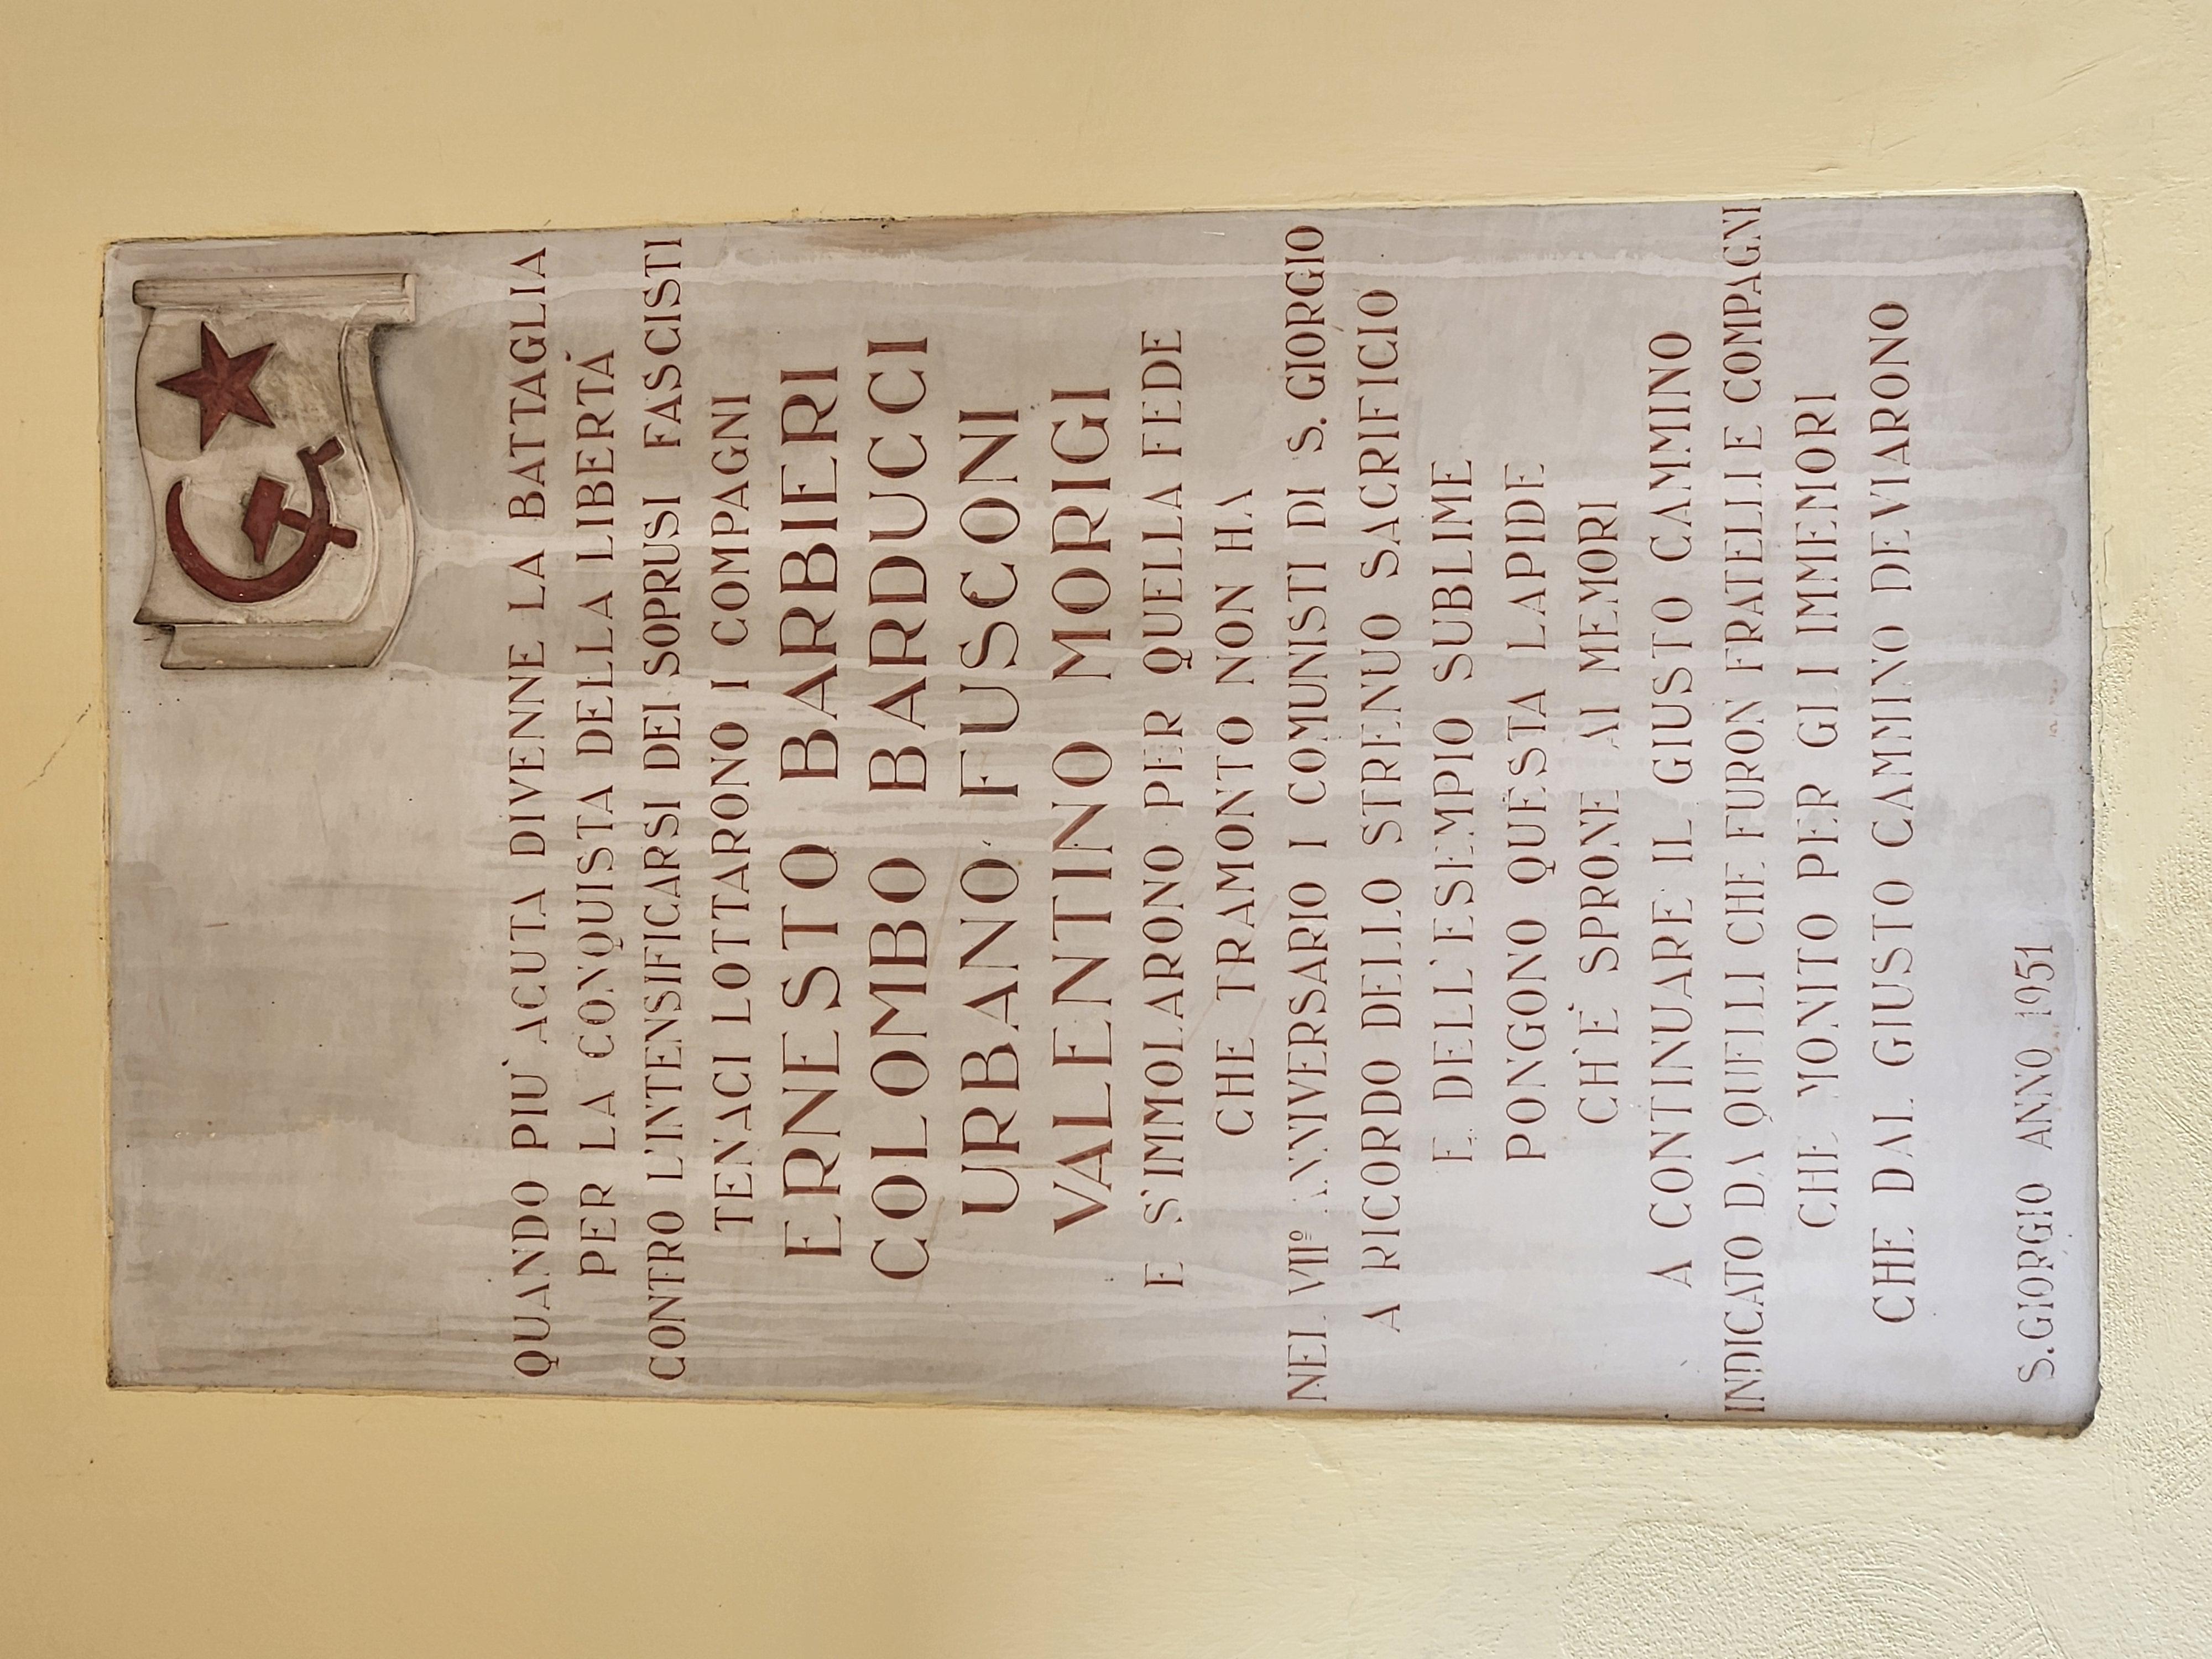 QUANDO PIU' ACUTA DIVENNE LA BATTAGLIA
PER LA CONQUISTA DELLA LIBERTÀ
CONTRO L'INTENSIFICARSI DEI SOPRUSI FASCISTI
TENACI LOTTARONO I COMPAGNI
ERNESTO BARBIERI
COLOMBO BARDUCCI
URBANO FUSCONI
VALENTINO MORIGI
E S'IMMOLARONO PER QUELLA FEDE
CHE TRAMONTO NON HA
NEL VIIº ANNIVERSARIO I COMUNISTI DI S. GIORGIO
A RICORDO DELLO STRENUO SACRIFICIO
E DELL'ESEMPIO SUBLIME
PONGONO QUESTA LAPIDE
CH'E' SPRONE AI MEMORI
A CONTINUARE IL GIUSTO CAMMINO
INDICATO DA QUELLI CHE FURON FRATELLI E COMPAGNI
CHE MONITO PER GLI IMMEMORI
CHE DAL GIUSTO CAMMINO DEVIARONO
S. GIORGIO ANNO 1951